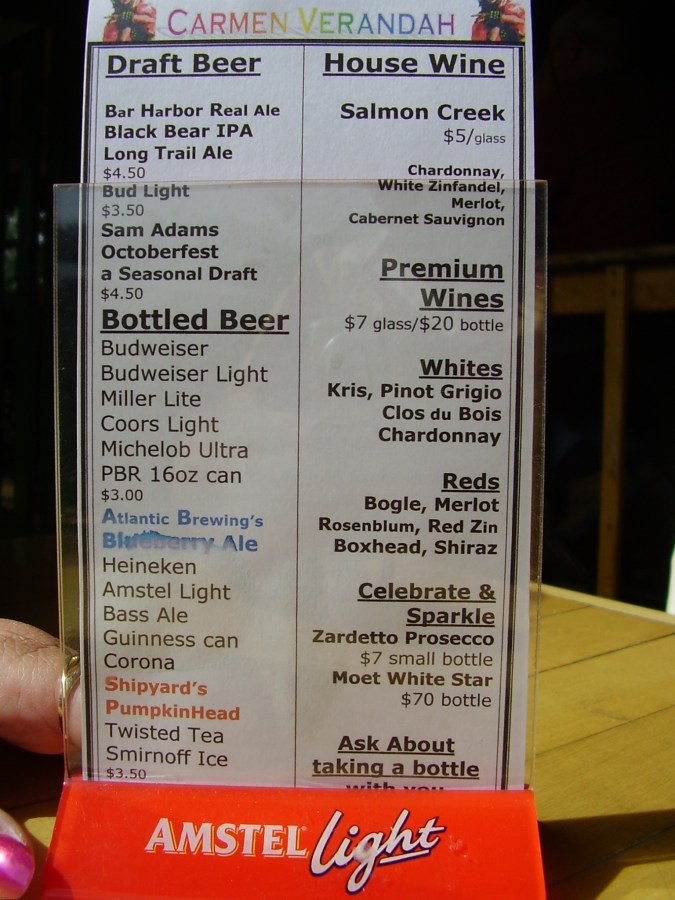 CARMEN VERANDAH
Draft Beer
Bar Harbor Real Ale
Black Bear IPA
Long Trail Ale
$4.50
Bud Light
$3.50
Sam Adams
Octoberfest
a Seasonal Draft
$4.50
Bottled Beer
Budweiser
Budweiser Light
Miller Lite
Coors Light
Michelob Ultra
PBR 16oz can
$3.00
Atlantic Brewing's
Blueberry Ale
Heineken
Amstel Light
Bass Ale
Guinness can
Corona
Shipyard's
PumpkinHead
Twisted Tea
Smirnoff Ice
$3.50
House Wine
Salmon Creek
$5/glass
Chardonnay,
White Zinfandel,
Merlot,
Cabernet Sauvignon
Premium
Wines
$7 glass/$20 bottle
Whites
Kris, Pinot Grigio
Clos du Bois
Chardonnay
Reds
Bogle, Merlot
Rosenblum, Red Zin
Boxhead, Shiraz
Celebrate &
Sparkle
Zardetto Prosecco
$7 small bottle
Moet White Star
$70 bottle
Ask About
taking a bottle
with you
AMSTEL light